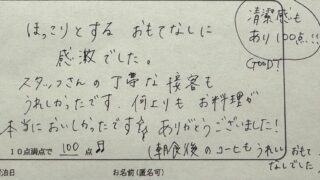 ほっこりとする おもてなしに
感激でした。
スタッフさんの丁寧な接客も
うれしかったです。何よりも お料理が
本当においしかったです。ありがとうございました!
10点満点で 100 点
(朝食後のコーヒーもうれしい
おもて
なしでした
清潔感も
あり100点!!
GOOD!
泊日
お名前(匿名可)